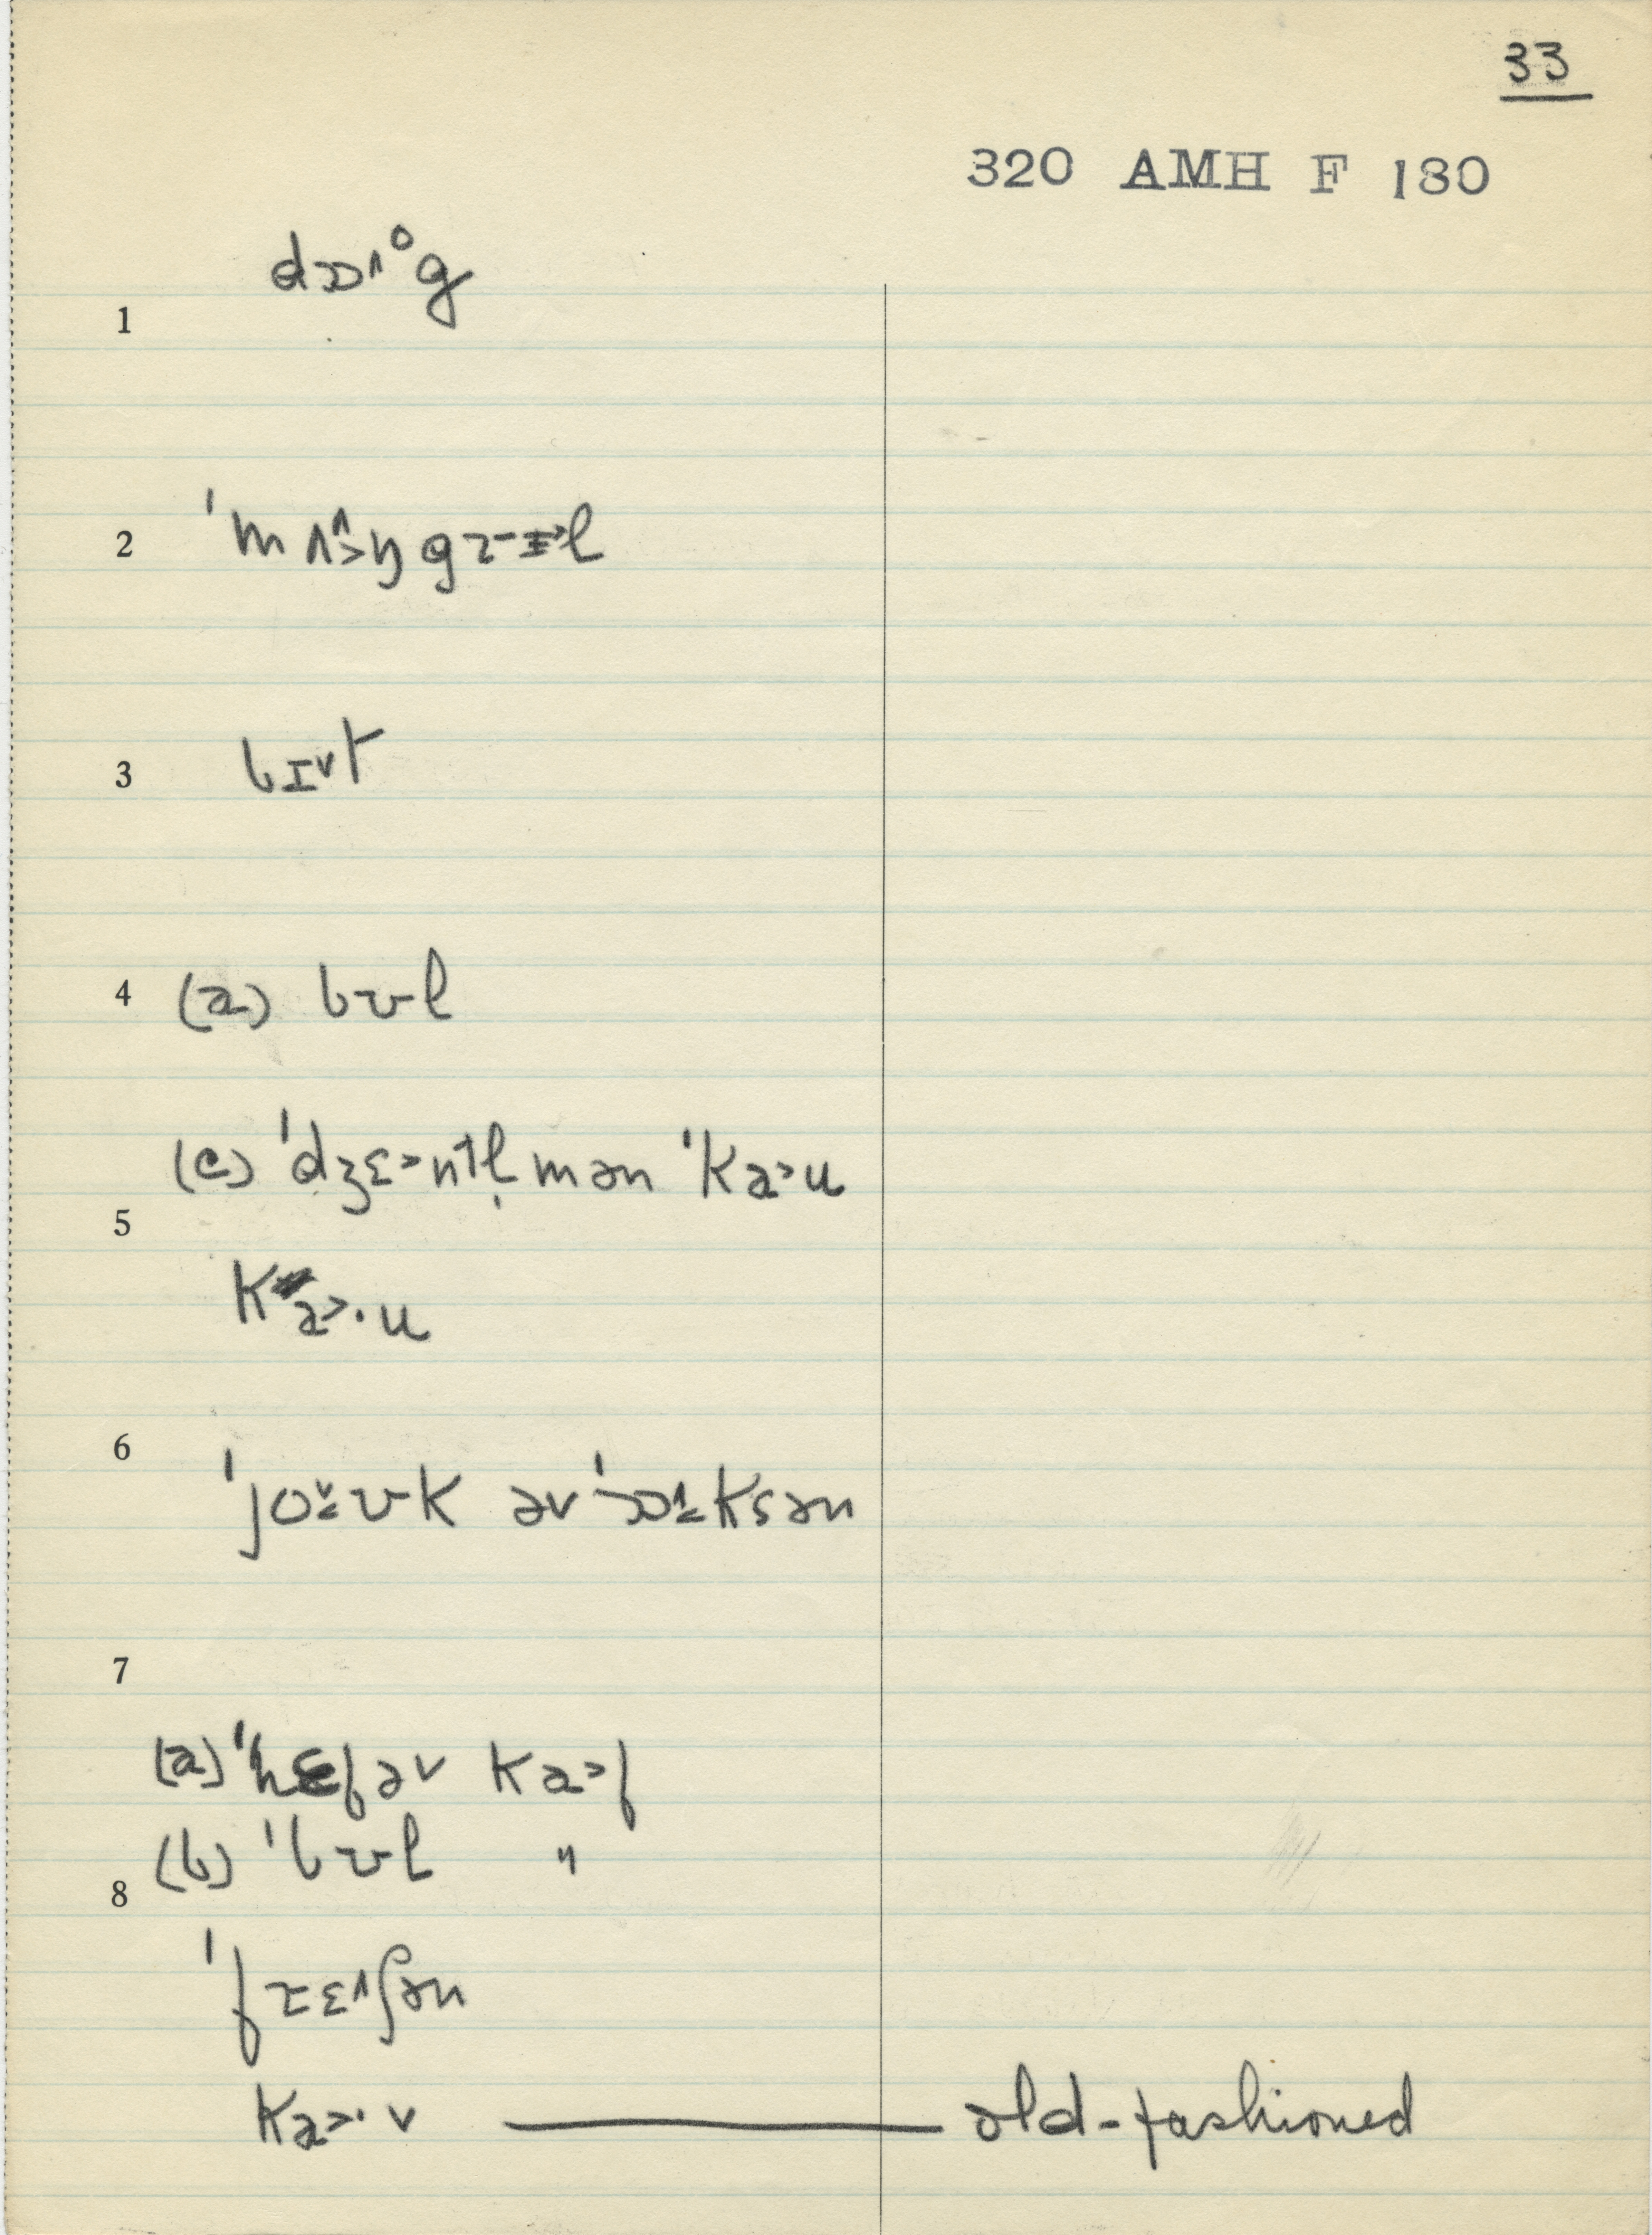 33
320 AMH F 180
1 dɒ˄°g
2 ˈmʌ˄˃ŋgɹ̵ɪ˃l
3 bɪ˅t
4 (a) bʊl
(c) ˈdʒɛ˃nt˺l̩mən ˈka˃u
5
ka˃·u
6
ˈjo˅ʊk əvˈɒ˄ksən
7
(a) ˈhɛfəv ka˃f
(b) ˈbʊl "
8
ˈfɹɛ˄ʃən
ka˃·v — old-fashioned